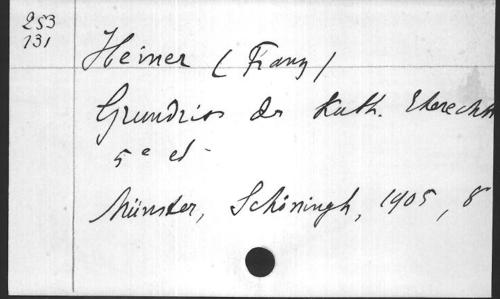 253
131
Heiner (Franz)
Grundriss des Kath. Eherechts
5e ed.
Münster, Schöningh, 1905, 8